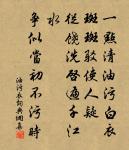 一點清油污白衣
斑斑駁駁使人疑
縱饒洗盡千江
水
爭似當初不污時
油污衣詞典網集